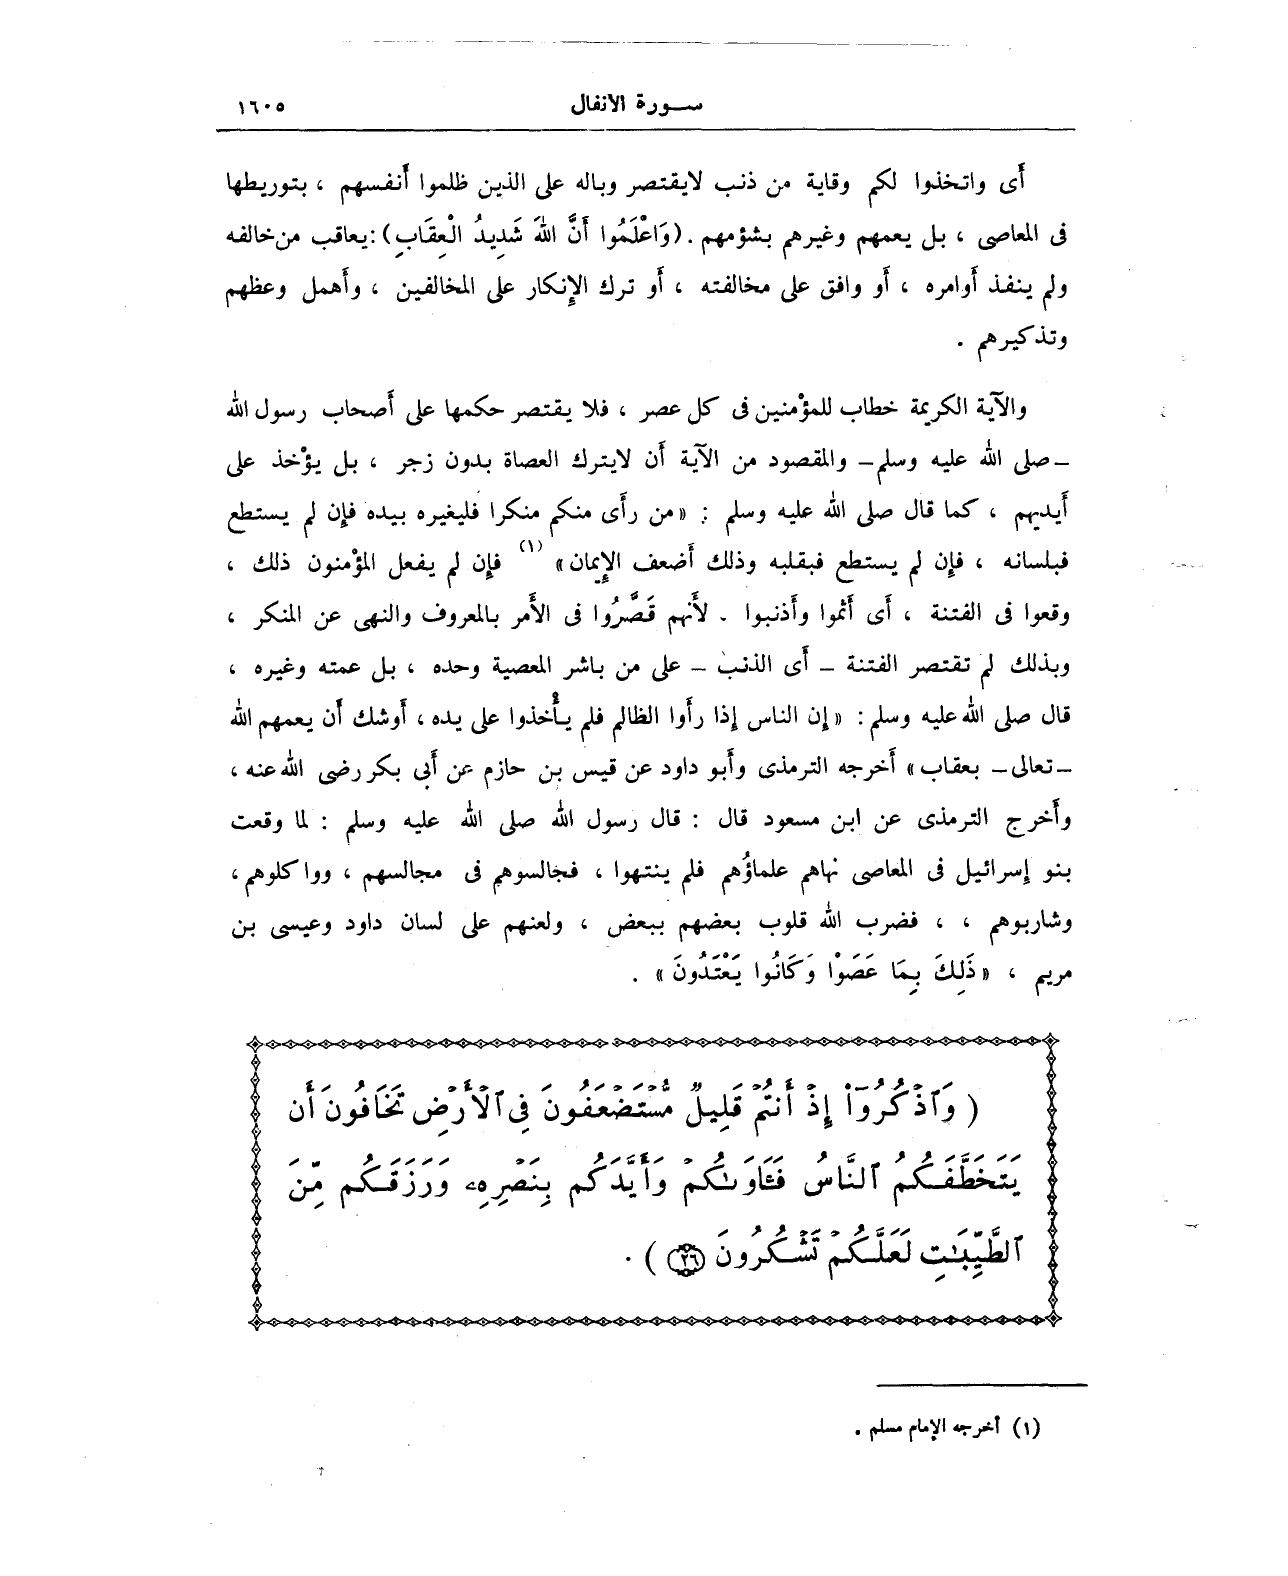 سورة الانفال ١٦٠٥
أى واتخذوا لكم وقاية من ذنب لايقتصر وباله على الذين ظلموا أنفسهم ، بتوريطها
فى المعاصى ، بل يعمهم وغيرهم بشؤمهم . (وَاعْلَمُوا أَنَّ اللهَ شَدِيدُ الْعِقَابِ) : يعاقب من خالفه
ولم ينفذ أوامره ، أو وافق على مخالفته ، أو ترك الإنكار على المخالفين ، وأهمل وعظهم
وتذكيرهم .
والآية الكريمة خطاب للمؤمنين فى كل عصر ، فلا يقتصر حكمها على أصحاب رسول الله
ـ صلى الله عليه وسلم ـ والمقصود من الآية أن لايترك العصاة بدون زجر ، بل يؤخذ على
أيديهم ، كما قال صلى الله عليه وسلم : «من رأى منكم منكرا فليغيره بيده فإن لم يستطع
فبلسانه ، فإن لم يستطع فبقلبه وذلك أضعف الإيمان» (١) فإن لم يفعل المؤمنون ذلك ،
وقعوا فى الفتنة ، أى أثموا وأذنبوا . لأنهم قَصَّرُوا فى الأمر بالمعروف والنهى عن المنكر ،
وبذلك لم تقتصر الفتنة ـ أى الذنب ـ على من باشر المعصية وحده ، بل عمته وغيره ،
قال صلى الله عليه وسلم : «إن الناس إذا رأوا الظالم فلم يأخذوا على يده ، أوشك أن يعمهم الله
ـ تعالى ـ بعقاب» أخرجه الترمذى وأبو داود عن قيس بن حازم عن أبي بكر رضى الله عنه ،
وأخرج الترمذى عن ابن مسعود قال : قال رسول الله صلى الله عليه وسلم : لما وقعت
بنو إسرائيل فى المعاصى نهاهم علماؤُهم فلم ينتهوا ، فجالسوهم فى مجالسهم ، وواكلوهم ،
وشاربوهم ، ، فضرب الله قلوب بعضهم ببعض ، ولعنهم على لسان داود وعيسى بن
مريم ، «ذَلِكَ بِمَا عَصَوْا وَكَانُوا يَعْتَدُونَ» .
( وَٱذْكُرُوٓا۟ إِذْ أَنتُمْ قَلِيلٌ مُّسْتَضْعَفُونَ فِى ٱلْأَرْضِ تَخَافُونَ أَن
يَتَخَطَّفَكُمُ ٱلنَّاسُ فَـَٔاوَىٰكُمْ وَأَيَّدَكُم بِنَصْرِهِۦ وَرَزَقَكُم مِّنَ
ٱلطَّيِّبَـٰتِ لَعَلَّكُمْ تَشْكُرُونَ ٢٦ ) .
(١) أخرجه الإمام مسلم .